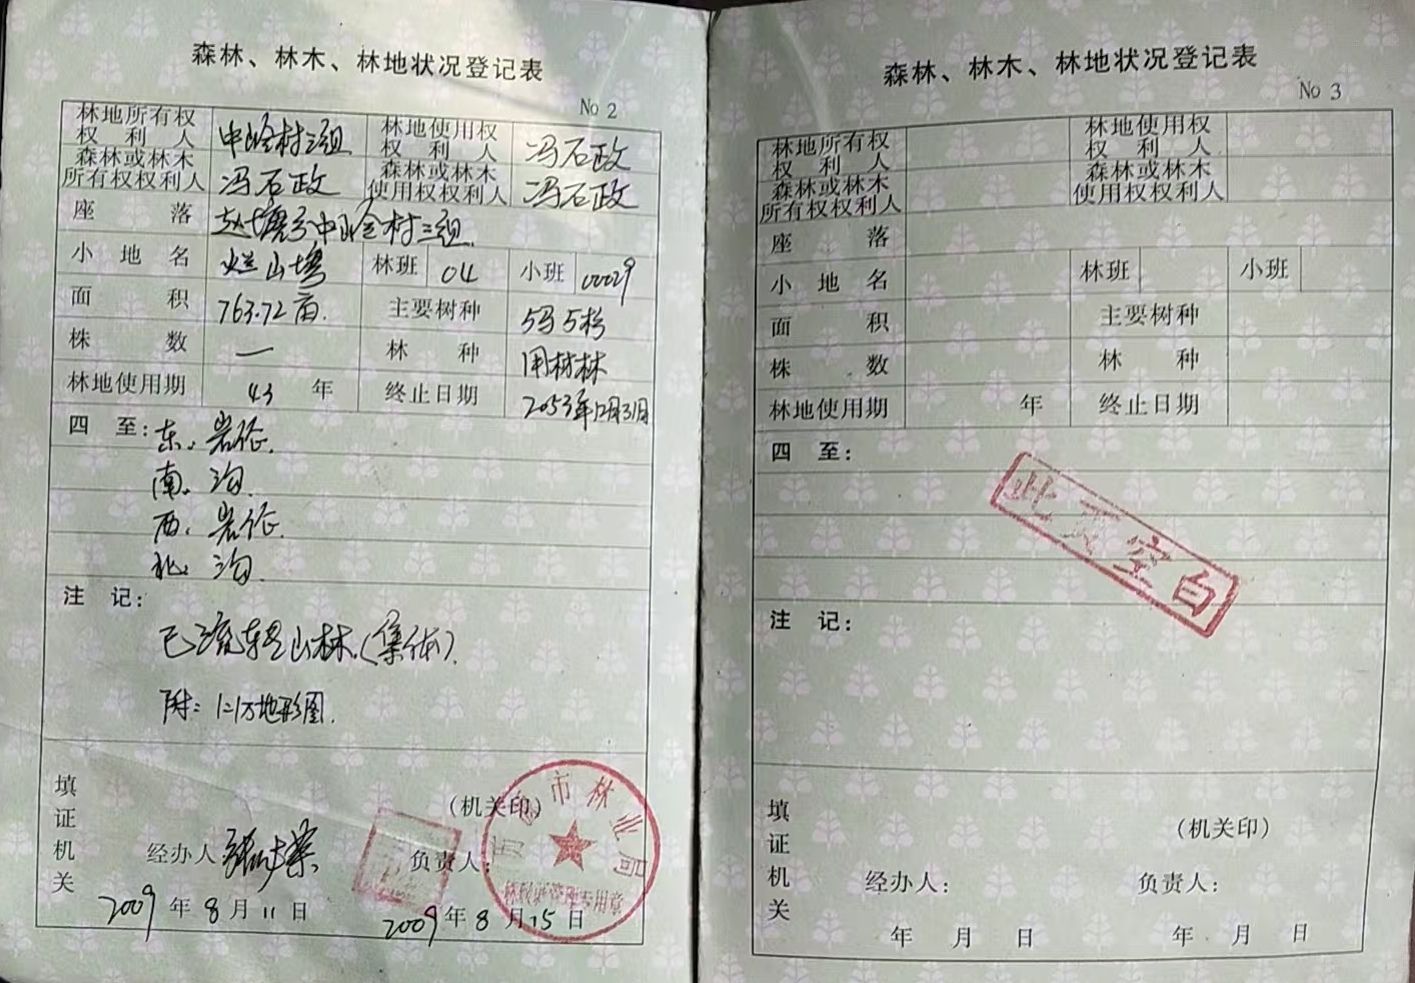 森林、林木、林地状况登记表
No 2
林地所有权权利人 中岭村三组 林地使用权权利人 冯石政
森林或林木所有权权利人 冯石政 森林或林木使用权权利人 冯石政
座落 中岭村三组
小地名 林班 04 小班 00029
面积 763.72亩. 主要树种 5马5杉
株数 — 林种 用材林
林地使用期 43 年 终止日期 2053年12月31日
四至: 东: 岩
南: 沟.
西: 岩
北: 沟.
注记:
已流转山林.(集体).
附: 1:1万地形图.
填证机关
(机关印)
市林业局
林权证管理专用章
经办人 负责人:
2009年8月11日 2009年8月15日
森林、林木、林地状况登记表
No 3
林地所有权权利人 林地使用权权利人
森林或林木所有权权利人 森林或林木使用权权利人
座落
小地名 林班 小班
面积 主要树种
株数 林种
林地使用期 年 终止日期
四至:
此页空白
注记:
填证机关
(机关印)
经办人: 负责人:
年 月 日 年 月 日